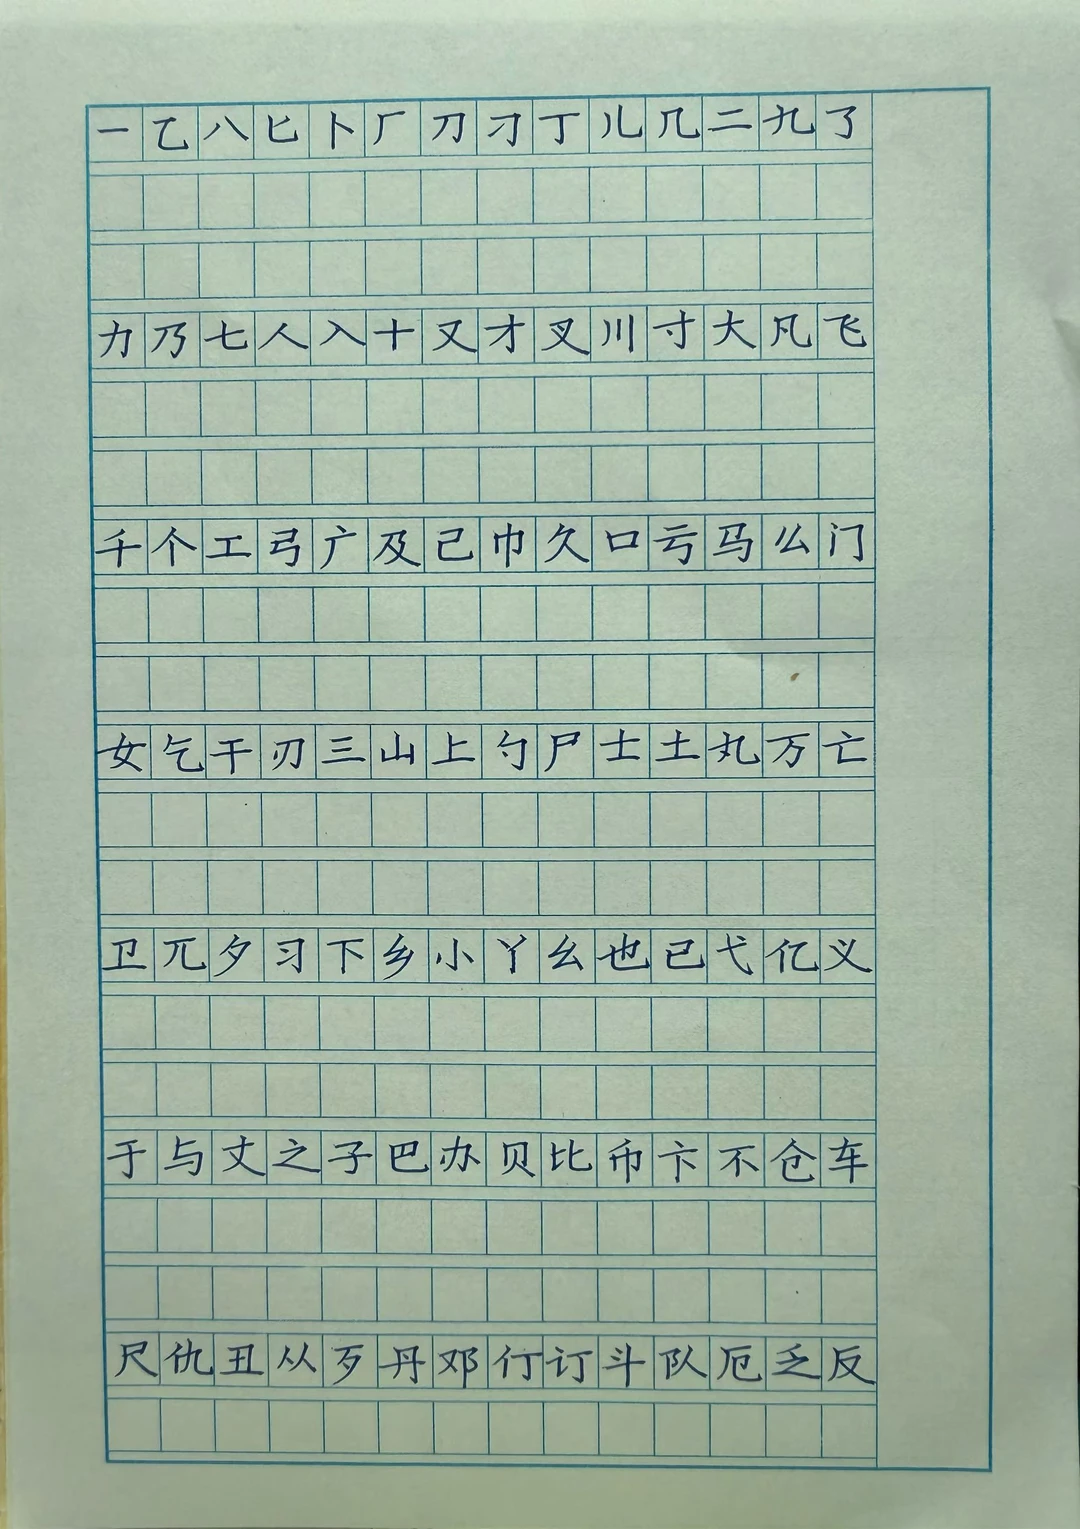 一乙八匕卜厂刀刁丁儿几二九了
力乃七人入十又才叉川寸大凡飞
千个工弓广及己巾久口亏马么门
女乞干刃三山上勺尸士土丸万亡
卫兀夕习下乡小丫幺也已弋亿义
于与丈之子巴办贝比币卞不仓车
尺仇丑从歹丹邓仃订斗队厄乏反